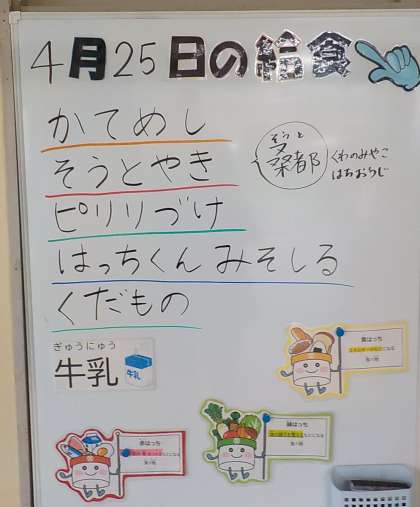 4月25日の給食
かてめし
そうとやき
そうと
桑都
くわのみやこ
はちおうじ
ピリリづけ
はっちくん みそしる
くだもの
ぎゅうにゅう
牛乳
牛乳
黄はっち
になる
食べ物
赤はっち
になる
食べ物
緑はっち
になる
食べ物